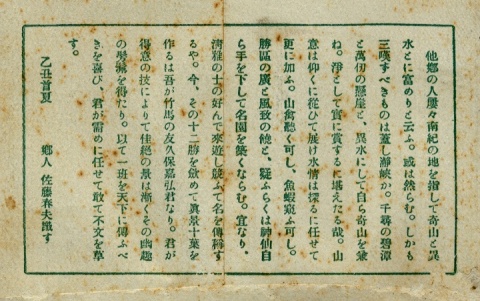 他鄕の人屢々南紀の地を指して奇山と異
水とに富めりと云ふ。或は然らむ。しかも
三嘆すべきものは蓋し瀞峽か。千尋の碧潭
と萬仞の懸崖と、異水にして自ら奇山を兼
ね。淨として實に賞するに堪えたる哉。山
意は仰くに從ひて展け水情は探るに任せて
更に加ふ。山禽聽く可し、魚蝦窺ふ可し。
勝區の廣と風致の饒と、疑ふらくは神仙自
ら手を下して名園を築くならむ。宜なり、
淸雅の士の好んで來遊し競ふて名を傳ふ
るや。今、その十二勝を蒐めて眞景十葉を
作るは吾が竹馬の友久保嘉弘君なり。君が
得意の技によりて佳絕の景は漸くその幽趣
の髣髴を得たり。以て一班を天下に傳ふべ
きを喜び、君が需めに任せて敢て不文を草
す。
乙丑首夏
鄕人 佐藤春夫識す